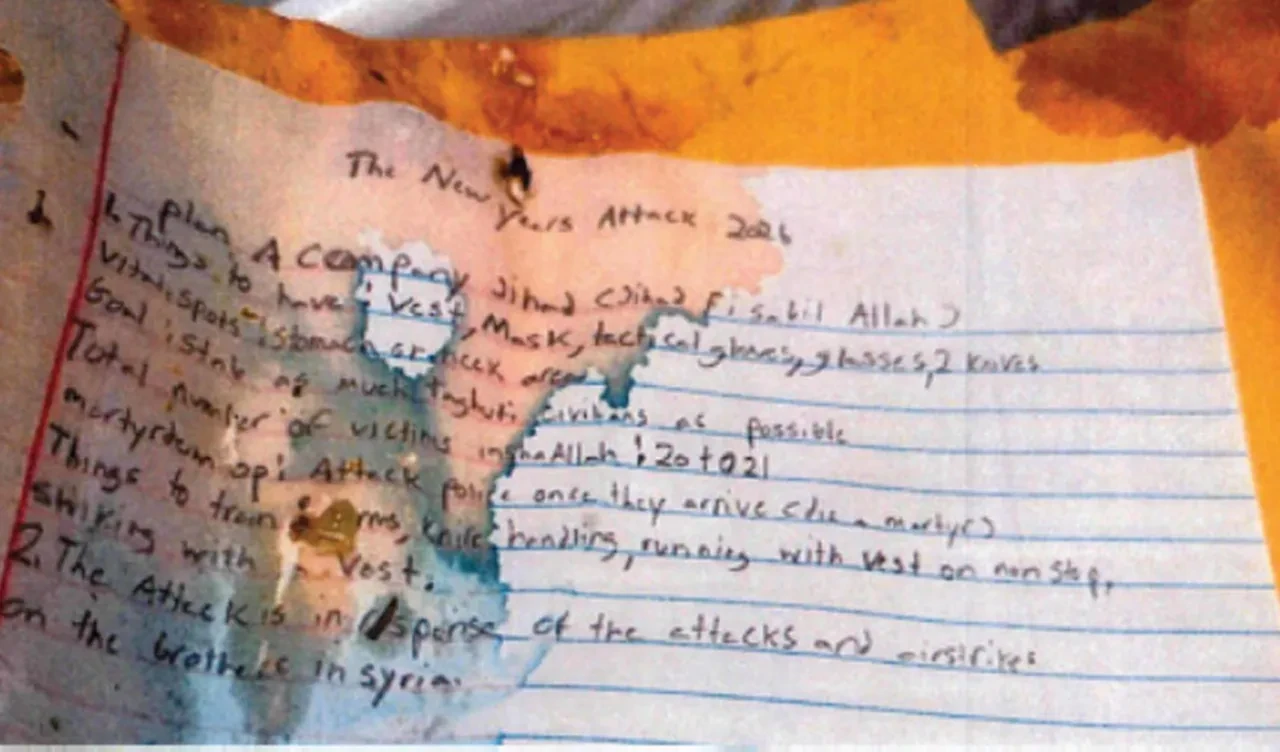 The New Years Attack 2026
Plan A Company Jihad (Jihad Fi sabil Allah)
1. Things to have: Vest, Mask, tactical gloves, glasses, 2 knives
Vital spots: stomach or neck area
Goal: Stab as much taghuti civilians as possible
Total number of victims inshaAllah: 20 to 21
martyrdom op: Attack police once they arrive (die a martyr)
Things to train: arms, knife handling, running with vest on non stop,
striking with vest.
2. The Attack is in response of the attacks and airstrikes
on the brothers in syria.